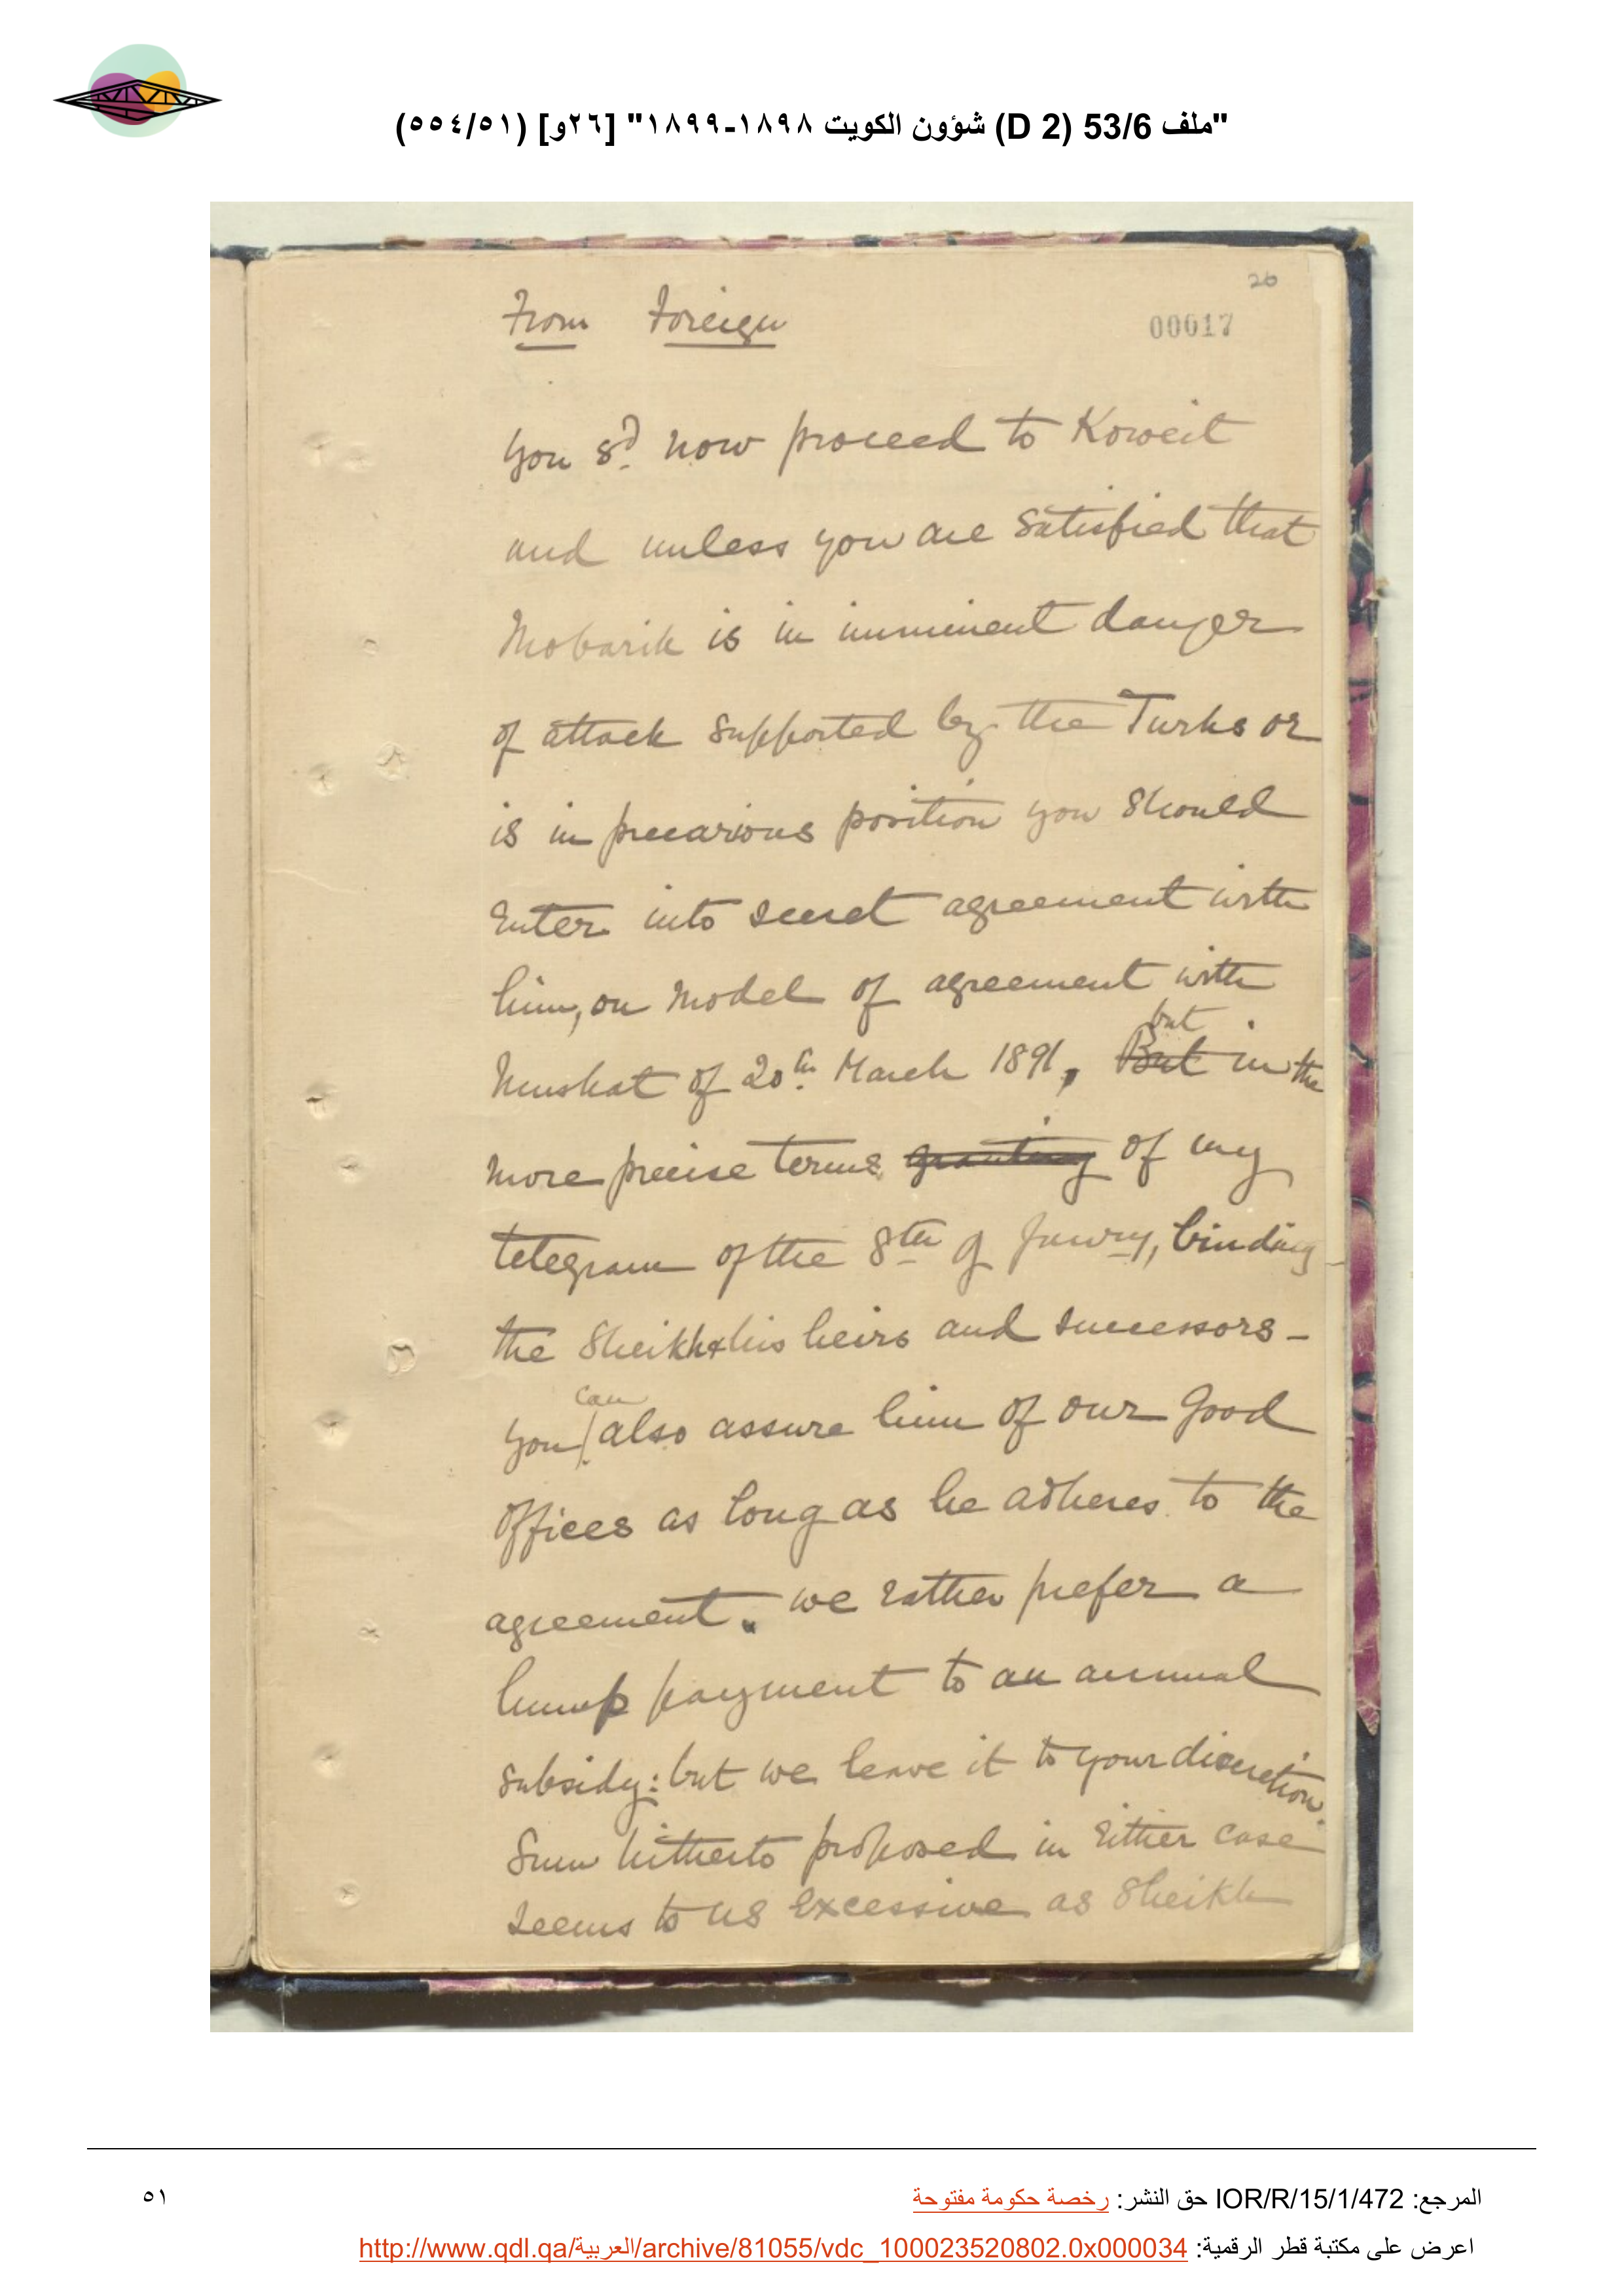 "ملف 53/6 (D 2) شؤون الكويت ١٨٩٨-١٨٩٩" [٢٦و] (٥٥٤/٥١)
26
From Foreign
00017
You sd. now proceed to Koweit
and unless you are satisfied that
Mobarik is in imminent danger
of attack supported by the Turks or
is in precarious position you should
enter into secret agreement with
him, on model of agreement with
but
Muskat of 20th March 1891, But in the
more precise terms granting of my
telegram of the 8th of Janry, binding
the Sheikh & his heirs and successors –
can
you also assure him of our good
offices as long as he adheres to the
agreement. we rather prefer a
lump payment to an annual
subsidy: but we leave it to your discretion.
Sum hitherto proposed in either case
seems to us excessive as Sheikh
المرجع: IOR/R/15/1/472 حق النشر: رخصة حكومة مفتوحة
٥١
اعرض على مكتبة قطر الرقمية: http://www.qdl.qa/العربية/archive/81055/vdc_100023520802.0x000034